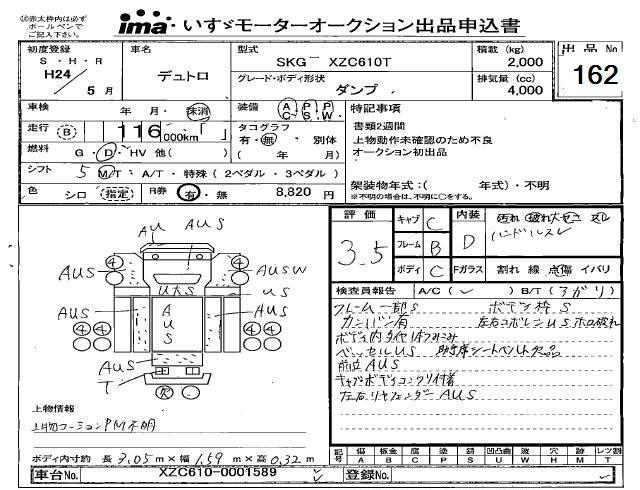 (注)太枠内は必ずボールペンでご記入下さい
ima いすゞモーターオークション出品申込書
初度登録 車名 型式 積載 (kg) 出品No.
S・H・R H24/5月 デュトロ SKG－XZC610T 2,000 162
グレード・ボディ形状 ダンプ 排気量 (cc) 4,000
車検 年 月・抹消 装備 A/C P/S P/W 特記事項
走行 B 116,000km タコグラフ 有・無 別体 (年 月)
書類2週間
上物動作未確認のため不良
オークション初出品
燃料 G・D・HV 他( )
シフト 5 M/T・A/T・特殊(2ペダル・3ペダル) 架装物年式:( 年式)・不明
色 シロ 指定 R券 有・無 8,820円 ※不明の場合は、不明に○をする。
評価 3.5 キャブ C 内装 D 汚れ 破れ大・中・小 スレ
フレーム B ハンドルスレ
ボディ C Fガラス 割れ 線 点傷 イバリ
検査員報告 A/C( ) B/T(
フレーム一部S ボデー枠S
カンバン有 左右コボレンUSホロ破れ
ボデー内
ベッセルUS 助手席シートベルト欠品
前立AUS
キャブボディコンクリ付着
左右リヤフェンダーAUS
AU AUS
4 4
AUS AUSW
UAS US
AUS AUS AUS
4 4 4 4
AUS
T
R
上物情報
上物コーションPM不明
ボディ内寸約 長 3.05m×幅 1.59m×高 0.32m
記号 傷 板金 腐 塗 錆 凹凸曲 板 穴 無 レツ割
A B C P S U W H M T
車台No. XZC610-0001589 登録No.